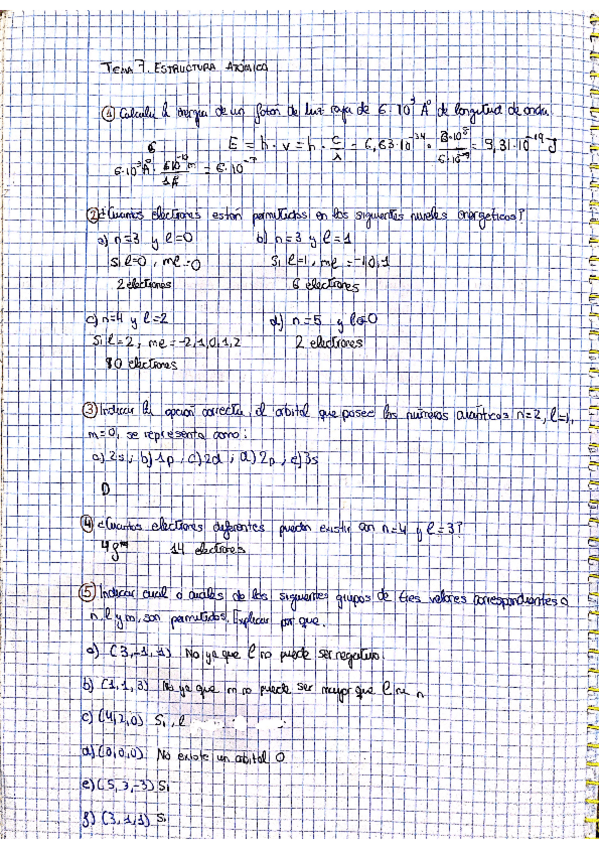 TEMA 7. ESTRUCTURA ATÓMICA
① Calcula la energía de un fotón de luz roja de 6·10³ A° de longitud de onda.
E = h · v = h · c/λ = 6,63·10⁻³⁴ · 3·10⁸/6·10⁻⁷ = 3,31·10⁻¹⁹ J
6·10³ A° · 10⁻¹⁰ m/1A° = 6·10⁻⁷
② ¿Cuántos electrones están permitidos en los siguientes niveles energéticos?
a) n=3 y l=0 b) n=3 y l=1
Si l=0, ml=0 Si l=1, ml=-1,0,1
2 electrones 6 electrones
c) n=4 y l=2 d) n=5 y l=0
Si l=2, ml=-2,1,0,1,2 2 electrones
10 electrones
③ Indicar la opción correcta, el orbital que posee los números cuánticos n=2, l=1,
m=0, se representa como:
a) 2s, b) 1p, c) 2d, d) 2p, e) 3s
D
④ ¿Cuantos electrones diferentes pueden existir con n=4 y l=3?
14 electrones
⑤ Indicar cual o cuales de los siguientes grupos de tres valores correspondientes a
n, l y m, son permitidos. Explicar por que.
a) (3,-1,1) No ya que l no puede ser negativo.
b) (1,1,3) No ya que m no puede ser mayor que l ni n
c) (4,2,0) Si, l
d) (0,0,0) No existe un orbital 0
e) (5,3,-3) Si
f) (3,1,1) Si